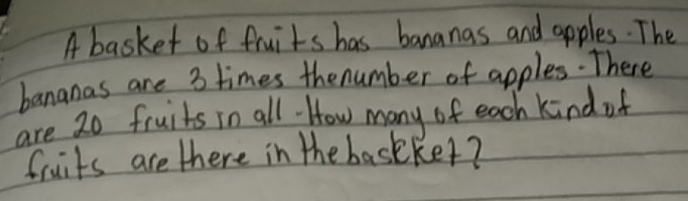 A basket of fruits has bananas and apples. The
bananas are 3 times the number of apples. There
are 20 fruits in all. How many of each kind of
fruits are there in the baskket?